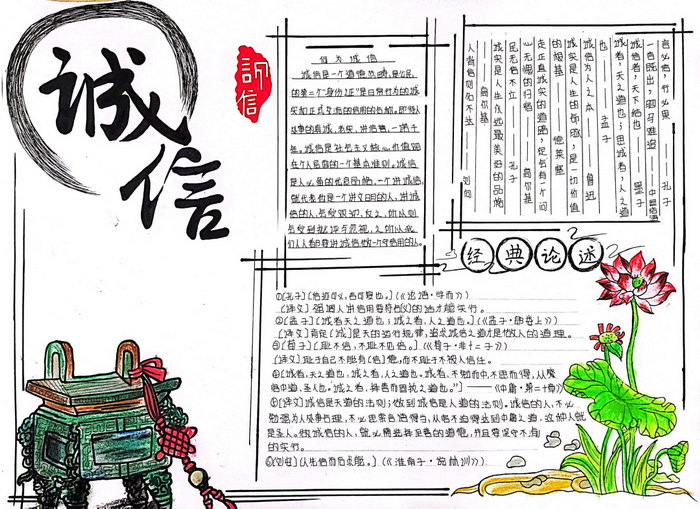 诚信
诚信
何为诚信
诚信是一个道德范畴，是公民
的第二个"身份证"是日常行为的诚
实和正式交流的信用的合称。即待人
处事的真诚、老实、讲信誉，一诺千
金。诚信是社会主义核心价值观
在个人层面的一个基本准则。诚信
是人必备的优良品格，一个讲诚信，
就代表他是一个讲文明的人，讲诚
信的人，
们人人都要讲诚信做一个守信用的人。
言必信，行必果——孔子
一言既出，驷马难追——中国俗语
诚信者，天下之结也——墨子
诚者，天之道也；思诚者，人之道
也——孟子
诚信为人之本——鲁迅
诚实是人生的命脉，是一切价值
的根基——德莱塞
走正直诚实的道路，定会有一个问
心无愧的归宿——高尔基
民无信不立——孔子
诚实是人生永远最美好的品格
——高尔基
人背信则名不达——刘向
经典论述
①[孔子]〔信近于义，言可复也。〕(《论语·学而》)
〔译文〕强调人讲信用要符合〔义〕的话才能实行。
②[孟子]〔诚者天之道也，诚之者，人之道也。〕(《孟子·离娄上》)
〔译文〕肯定〔诚〕是天的运行规律，追求诚信之道是做人的道理。
③[荀子]〔耻不信，不耻不见信。〕(《荀子·非十二子》)
〔译文〕耻于自己不能有〔信〕德，而不耻于不被人信任。
④〔诚者，天之道也，诚之者，人之道也。诚者，不勉而中，不思而得，从容
中道，圣人也。诚之者，择善而固执之者也。"〕——《中庸·第二十章》
⑤〔译文〕诚信是天道的法则；做到诚信是人道的法则。诚信的人，不必
勉强为人处事合理，不必思索言语得当，从容不迫得达到中庸之道，这种人就
是圣人。做诚信的人，就必需选择至善的道德，并且要坚守不渝
的实行。
⑤〔刘安〕〔人先信而后求能。〕(《淮南子·说林训》)